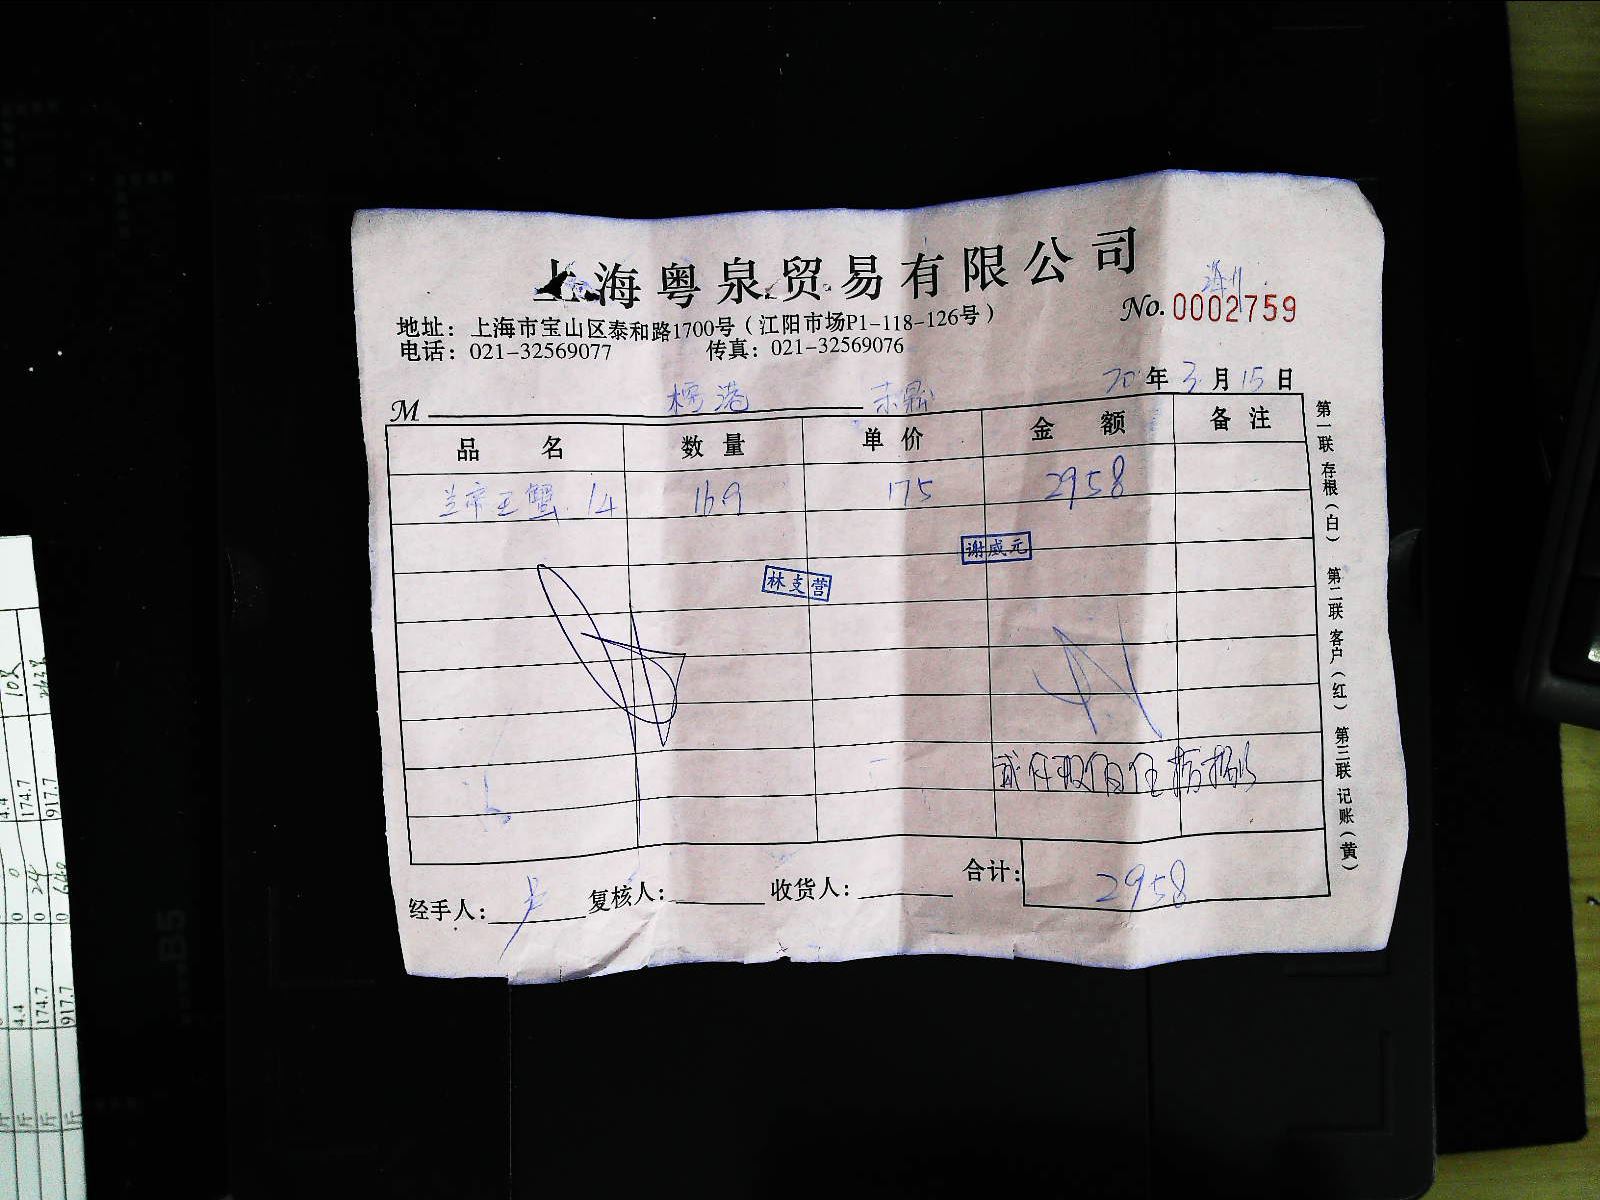 上海粤泉贸易有限公司
地址：上海市宝山区泰和路1700号（江阳市场P1-118-126号）
No. 0002759
电话：021-32569077 传真：021-32569076
20年3月15日
M
品名 数量 单价 金额 备注
兰帝王蟹 14 169 175 2958
谢威元
林支营
贰仟玖佰伍拾捌
合计：2958
经手人： 复核人： 收货人：
第一联 存根（白） 第二联 客户（红） 第三联 记账（黄）
108
4.4
174.7
917.7
0
0 24
0 648
4.4
174.7
917.7
斤
斤
斤
B5